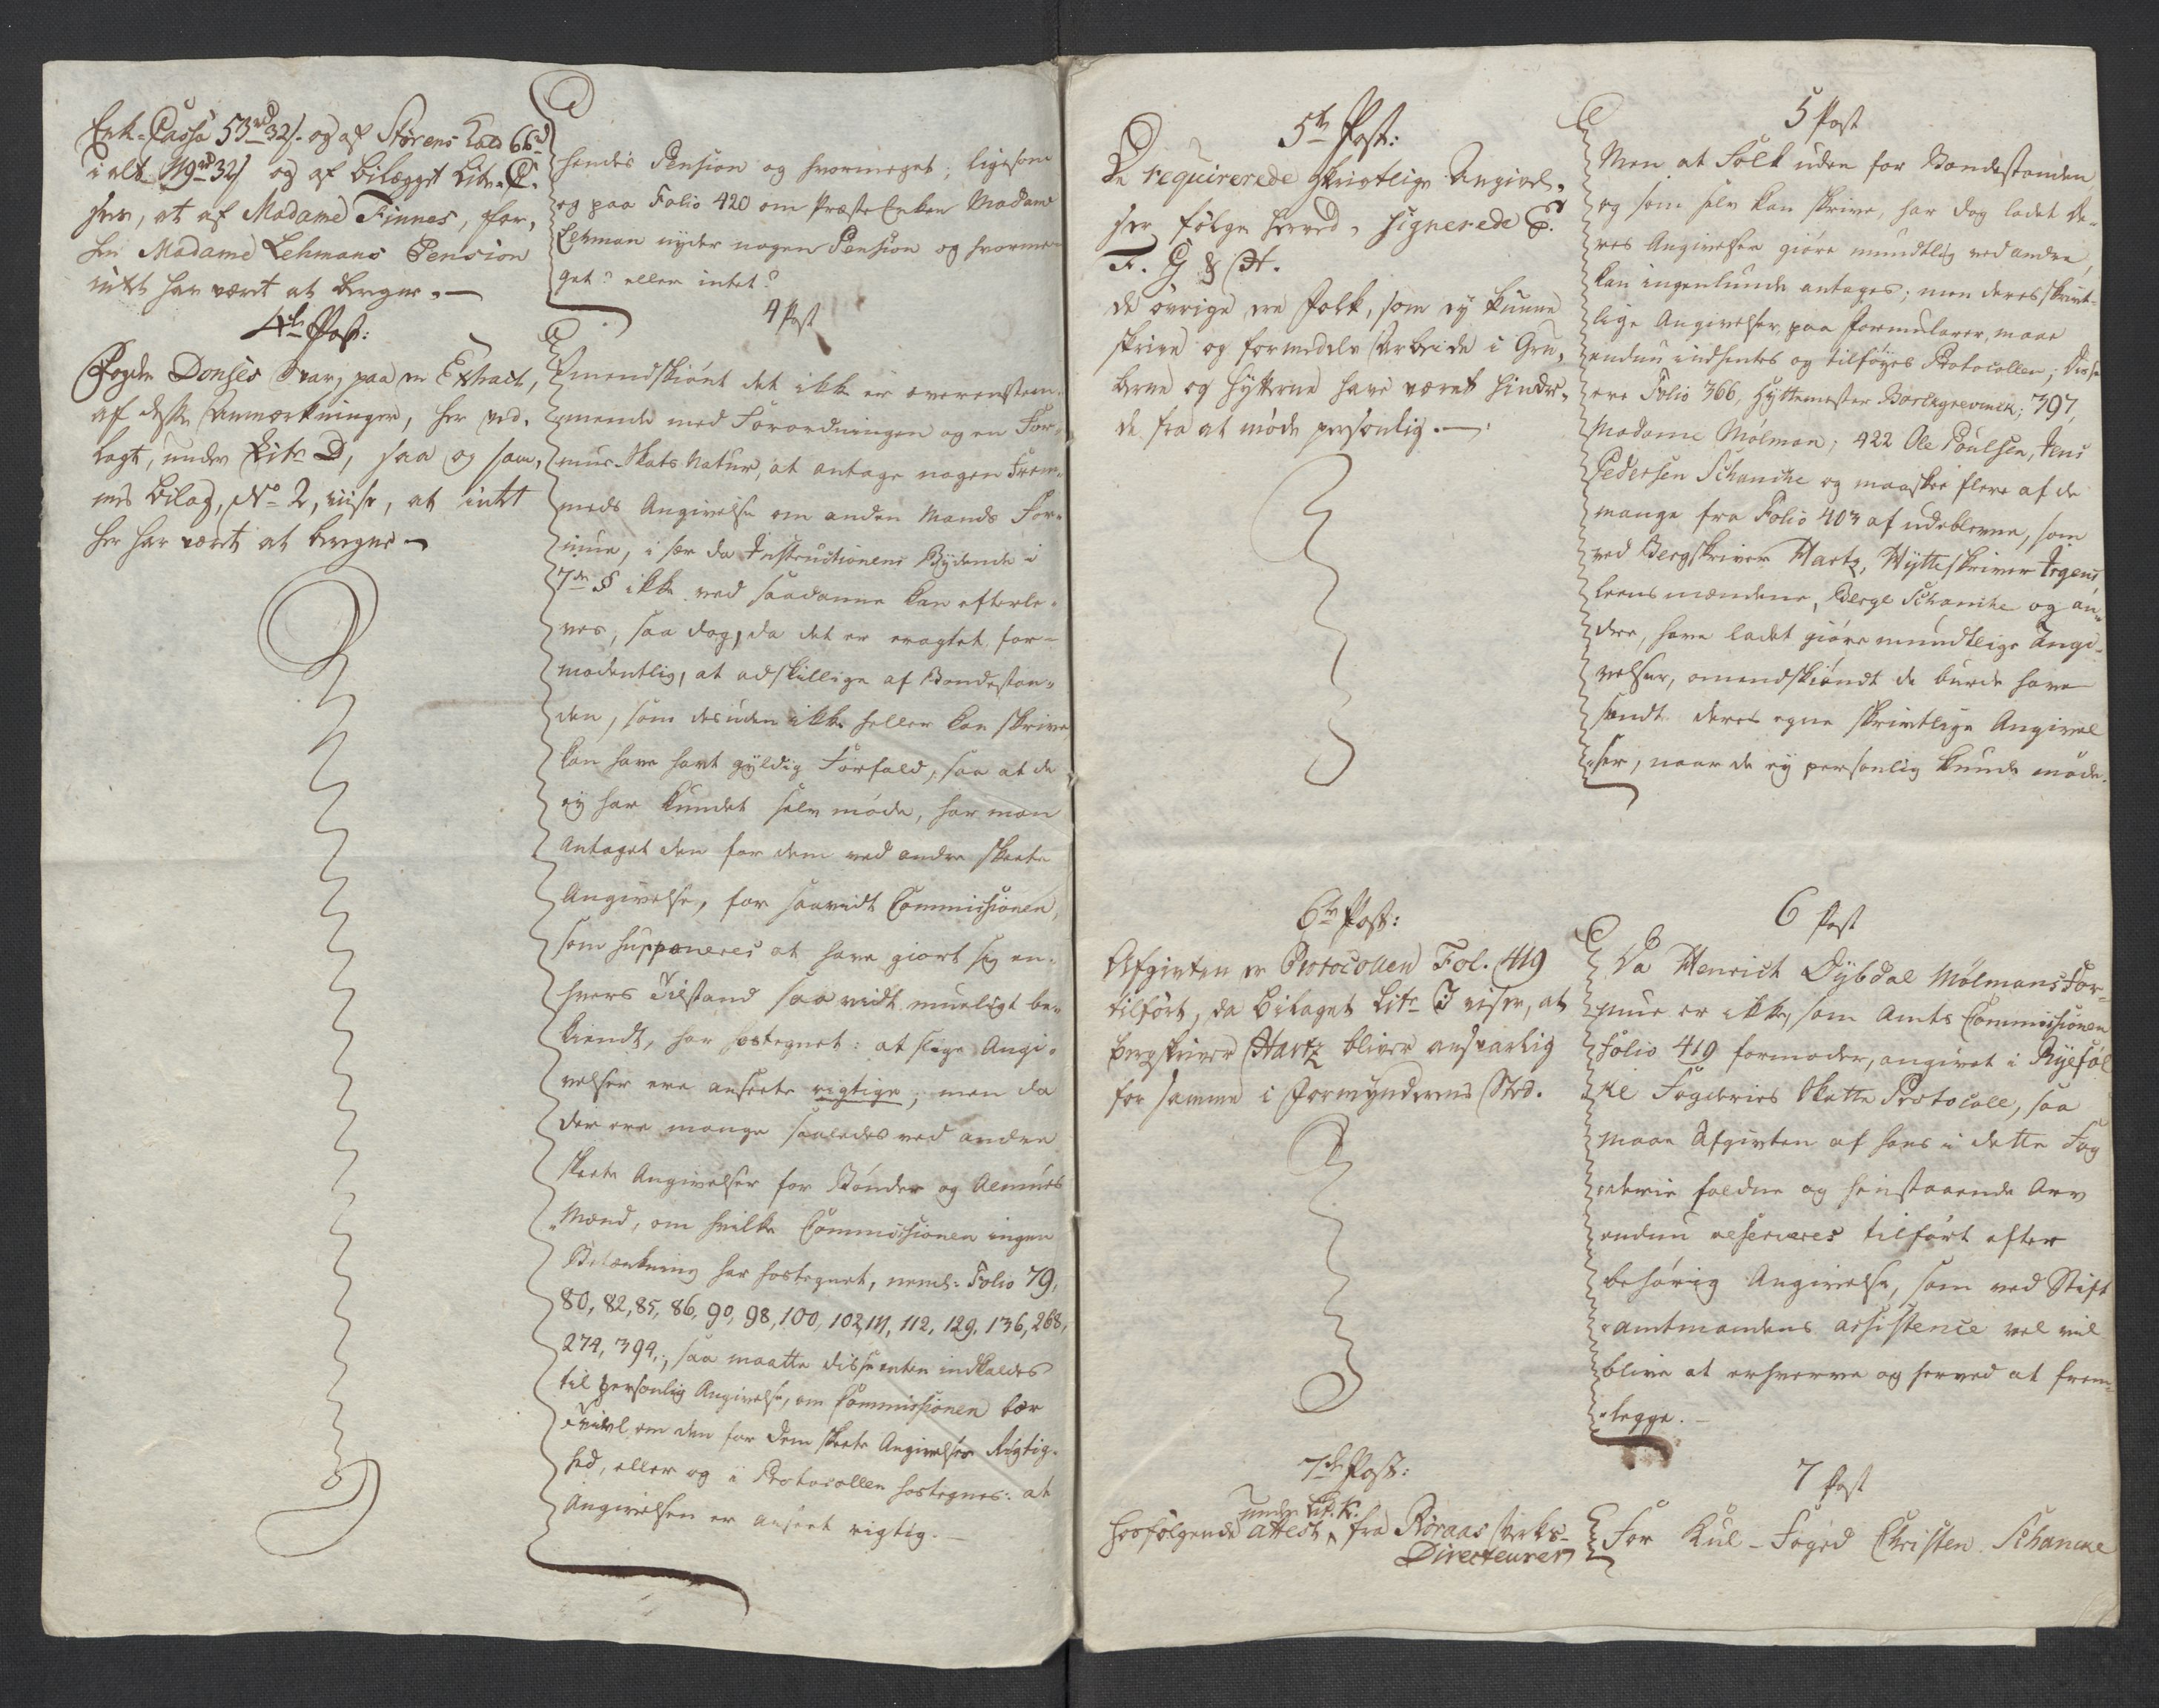 Enk-Cassa 53rd 32s. og af Størens Kald 66rd
i alt 119rd 32s og af bilægget Litr. C.
sees, at af Madame Finnes, for,
hen Madame Lehmans Pension
intet har været at beregne.—
4de Post:
Fogden Donses Svar, paa en Extract,
af disse Anmærkninger, her ved,
lagt, under Litr D, saa og sam,
mes bilag, No 2, viise, at intet
her har været at beregne
hendes Pension og hvormeget; ligesom
og paa Folio 420 om Præste Enken Madame
Lehman nyder nogen Pension og hvorme-
get? eller intet?
4 Post
Omendskiønt det ikke er overensstem-
mende med Forordningen og en For-
mue Skats Natur, at antage nogen Frem-
meds Angivelse om anden Mands For-
mue, i sær da Instructionens Bydende i
7de § ikke ved saadanne kan efterle-
ves, saa dog, da det er eragtet for-
modentlig, at adskillige af Bondestan-
den, som desuden ikke heller kan skrive
kan have havt gyldig Forfald, saa at de
ey har kundet selv møde, har man
antaget den for dem ved andre skeete
Angivelse, for saavidt Commissionen,
som supponeres at have giort sig en-
hvers Tilstand saa vidt mueligt be-
kiendt, har hostegnet: at slige Angi-
velser ere ansete rigtige; men da
der ere mange saaledes ved andre
skeete Angivelser for Bønder og Almues
Mænd, om hvilke Commissionen ingen
Betænkning har hostegnet, neml: Folio 79,
80, 82, 85, 86, 90, 98, 100, 102, 111, 112, 129, 136, 268,
274, 394,; saa maatte disse enten indkaldes
til personlig Angivelse, om Commissionen bær
Tvivl om den for dem skeete Angivelses Rigtig-
hed, eller og i Protocollen hostegnes: at
Angivelsen er anseet rigtig.—
5te Post:
De requirerede skrivtlige Angivel,
ser følge herved, signerede E.
F. G & H.
de øvrige ere Folk, som ey kunne
skrive og formedelst Arbeide i Gru,
berne og Hytterne have været hindre,
de fra at møde personlig.—
5 Post
Men at Folk uden for Bondestanden
og som selv kan skrive, har dog ladet De-
res Angivelse giøre mundtlig ved andre,
kan ingenlunde antages; men deres skrivt-
lige Angivelser paa Formularer, maae
endnu indhentes og tilføyes Protocollen; disse
ere Folio 366, Hyttemester Borchgrevinck; 397,
Madame Mølman; 422 Ole Poulsen, Jens
Pedersen Schanche og maaskee flere af de
mange fra Folio 403 af udeblevne, som
ved Bergskriver Hartz, Hytteskriver Irgens
Leensmændene, Berge Schanche og an-
dre, have ladet giøre mundtlige Angi-
velser, omendskiøndt de burde have
sendt deres egne skrivtlige Angivel
ser, naar de ey personlig kunde møde.
6te Post:
Afgivten er Protocollen Fol. 419
tilført, da bilaget Litr I viser, at
bergskriver Hartz bliver ansvarlig
for samme i Formynderens Sted.
6 Post
Da Henrich Dybdal Mølmans For-
mue er ikke, som Amts Commissionen
Folio 419 formoder, angivet i Ryefyl
ke Fogderies Skatte Protocoll, saa
maae Afgivten af hans i dette Fog
derie faldne og henstaaende Arv
endnu reserveres tilført efter
behørig Angivelse, som ved Stift
amtmandens assistence vel vil
blive at erhverve og herved at frem-
legge.—
7de Post:
under Lit. K.
hosfølgende attest fra Røraas Verks-
Directeuren
7 Post
For Kul-Foged Christen Schancke